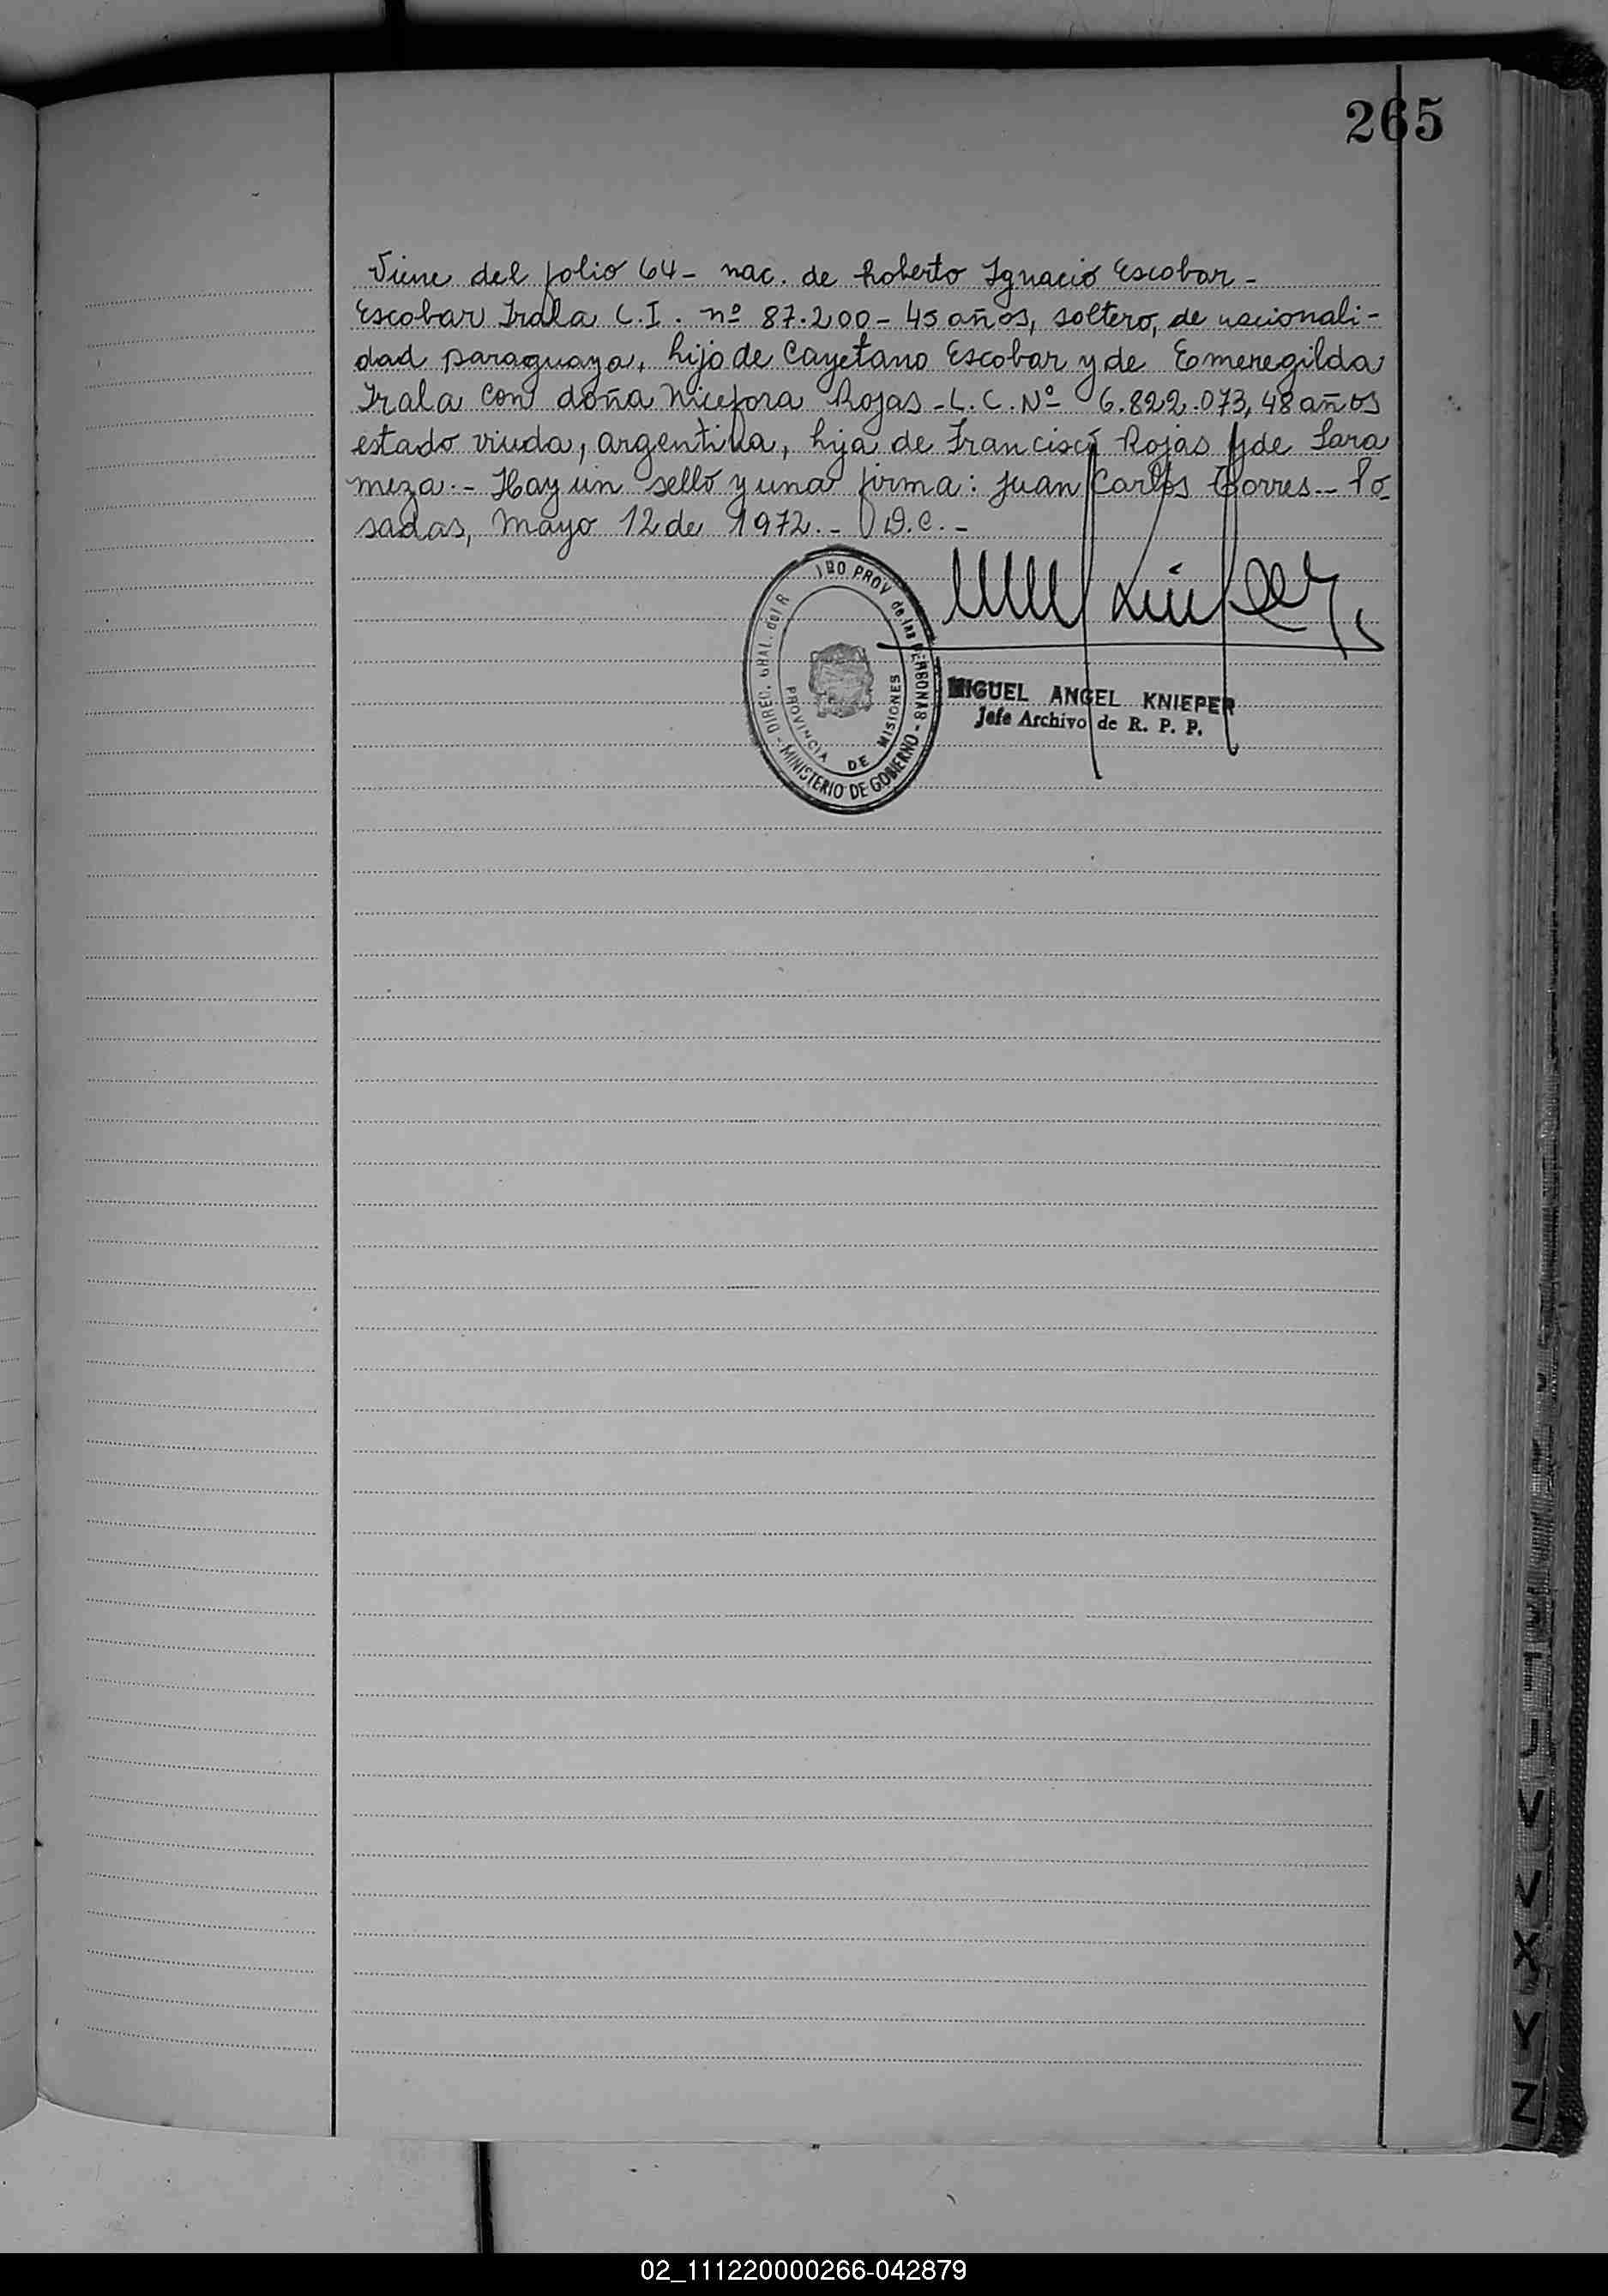 265
Viene del folio 64- nac. de Roberto Ignacio Escobar-
Escobar Irala C.I. nº 87.200- 45 años, soltero, de nacionali-
dad paraguaya, hijo de Cayetano Escobar y de Emeregilda
Irala con doña Nicefora Rojas -L.C. Nº 6.822.073, 48 años
estado viuda, argentina, hija de Francisco Rojas y de Sara
meza.- Hay un sello y una firma: Juan Carlos Torres.- Po
sadas, Mayo 12 de 1972.- D.C.-
DIREC. GRAL. del R PROV de las PERSONAS - MINISTERIO DE GOBIERNO -
PROVINCIA DE MISIONES
MIGUEL ANGEL KNIEPER
Jefe Archivo de R. P. P.
V
X
Y
Z
02_111220000266-042879